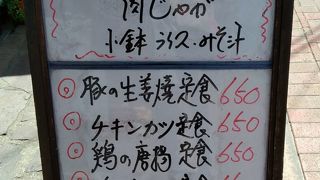 肉じゃが
小鉢 ライス・みそ汁
豚の生姜焼定食 650
チキンカツ定食 650
鶏の唐揚定食 650